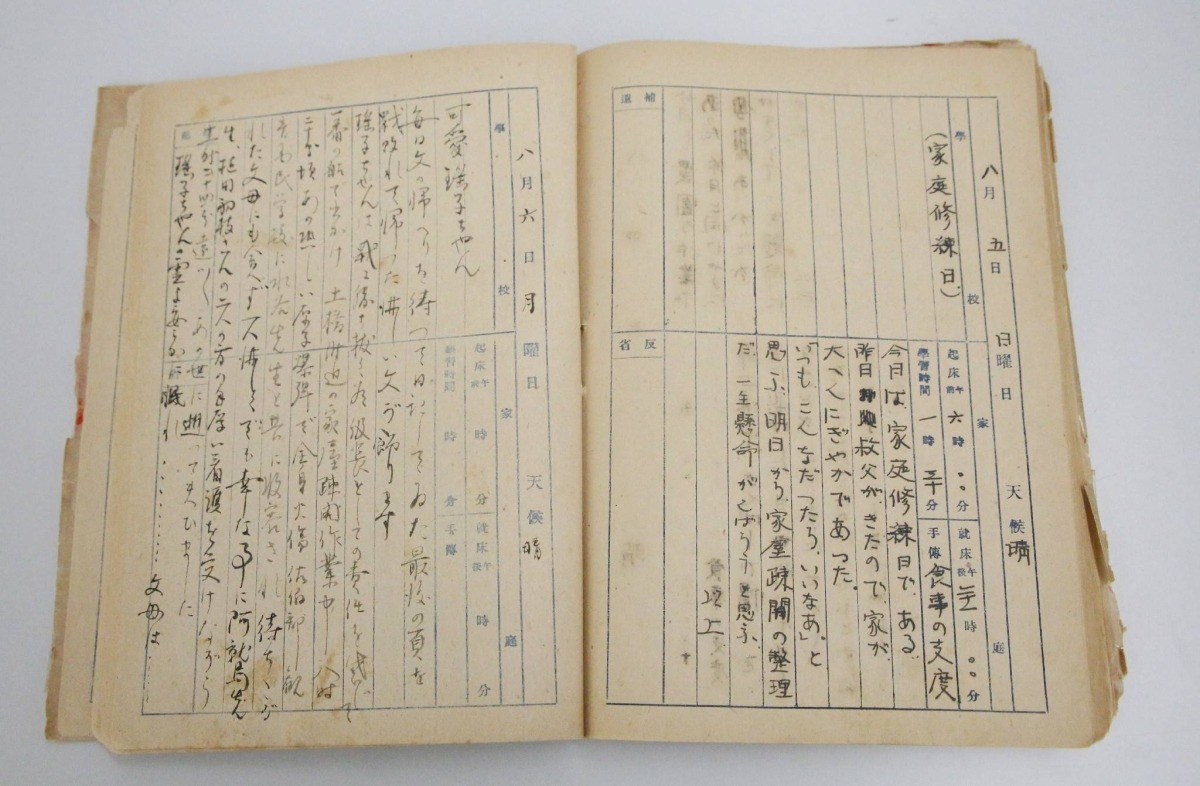 八月五日 日曜日 天候晴
學校
家庭
(家庭修練日)
起床午前六時〇〇分
就床午後 時〇〇分
學習時間一時三十分
手傳食事の支度
今日は、家庭修練日である
昨日 叔父が、きたので、家が
大へんにぎやかであった。
「いつも、こんなだったら、いいなあ」と
思ふ、明日から、家屋疎開の整理
だ、一生懸命がんばらうと思ふ、
補遺
反省
八月六日 月曜日 天候晴
學校
家庭
起床午前 時 分
就床午後 時 分
學習時間 時 分
手傳
可愛瑤子ちゃん
毎日父の帰へりを待つて日記してゐた最後の頁を
戦敗れて帰った悲しい父が飾ります
瑤子ちゃんは 戦に勝ち抜く為 級長としての責任を感じて
一番の船で出かけ 土橋附近の家屋疎開作業中 八時
二十分頃あの恐しい原子爆弾で全身火傷 佐伯郡観
音国民学校に水谷先生と共に収容され 待ちこが
れた父母にも会へず 悲しく でも幸なる事に阿
生、 さんの二人の方の手厚い看護を受けながら
あの世に逝ってしまひました
瑤子ちゃんの霊よ安らかに眠れ…………父母は……